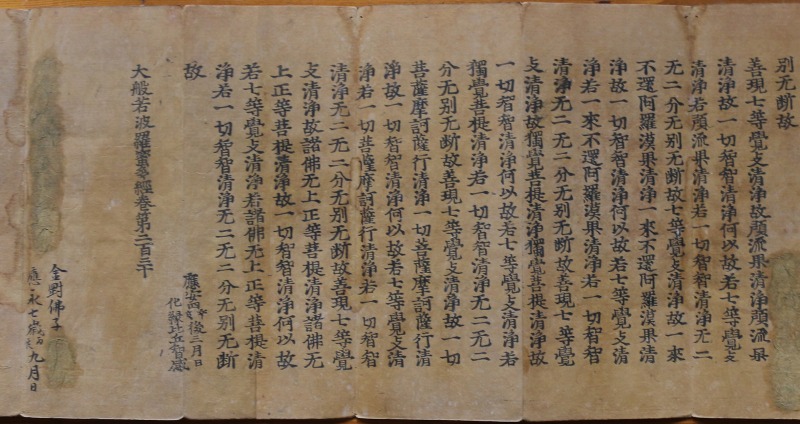 別无断故
善現七等覺支清淨故預流果清淨預流果
清淨故一切智智清淨何以故若七等覺支
清淨若預流果清淨若一切智智清淨无二
无二分无別无断故七等覺支清淨故一來
不還阿羅漢果清淨一來不還阿羅漢果清
淨故一切智智清淨何以故若七等覺支清
淨若一來不還阿羅漢果清淨若一切智智
清淨无二无二分无別无断故善現七等覺
支清淨故獨覺菩提清淨獨覺菩提清淨故
一切智智清淨何以故若七等覺支清淨若
獨覺菩提清淨若一切智智清淨无二无二
分无別无断故善現七等覺支清淨故一切
菩薩摩訶薩行清淨一切菩薩摩訶薩行清
淨故一切智智清淨何以故若七等覺支清
淨若一切菩薩摩訶薩行清淨若一切智智
清淨无二无二分无別无断故善現七等覺
支清淨故諸佛无上正等菩提清淨諸佛无
上正等菩提清淨故一切智智清淨何以故
若七等覺支清淨若諸佛无上正等菩提清
淨若一切智智清淨无二无二分无別无断
故
大般若波羅蜜多經卷第二百三十
應安四年後三月日
化縁比丘智
金剛佛子
應永七歳九月日